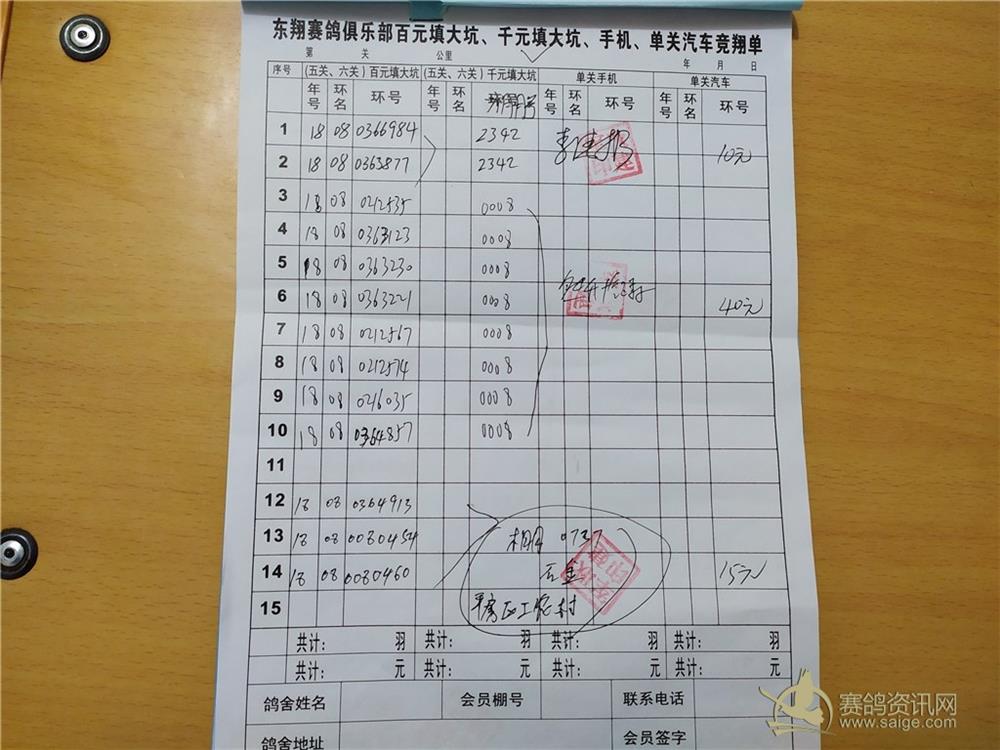 东翔赛鸽俱乐部百元填大坑、千元填大坑、手机、单关汽车竞翔单
第 关 公里 年 月 日
序号 (五关、六关)百元填大坑 (五关、六关)千元填大坑 单关手机 单关汽车
年号 环名 环号 年号 环名 年号 环名 环号 年号 环名 环号
1 18 08 0366984 2342
2 18 08 0363877 2342 10元
3 18 08 0212535 0008
4 18 08 0363123 0008
5 18 08 0363230 0008
6 18 08 0363221 0008 40元
7 18 08 0212567 0008
8 18 08 0212574 0008
9 18 08 0216035 0008
10 18 08 0364857 0008
11
12 18 08 0364913
13 18 08 0080454 棚号 0737
14 18 08 0080460 15元
15
共计: 羽 共计: 羽 共计: 羽 共计: 羽
共计: 元 共计: 元 共计: 元 共计: 元
鸽舍姓名 会员棚号 联系电话
鸽舍地址 会员签字
赛鸽资讯网
www.saige.com